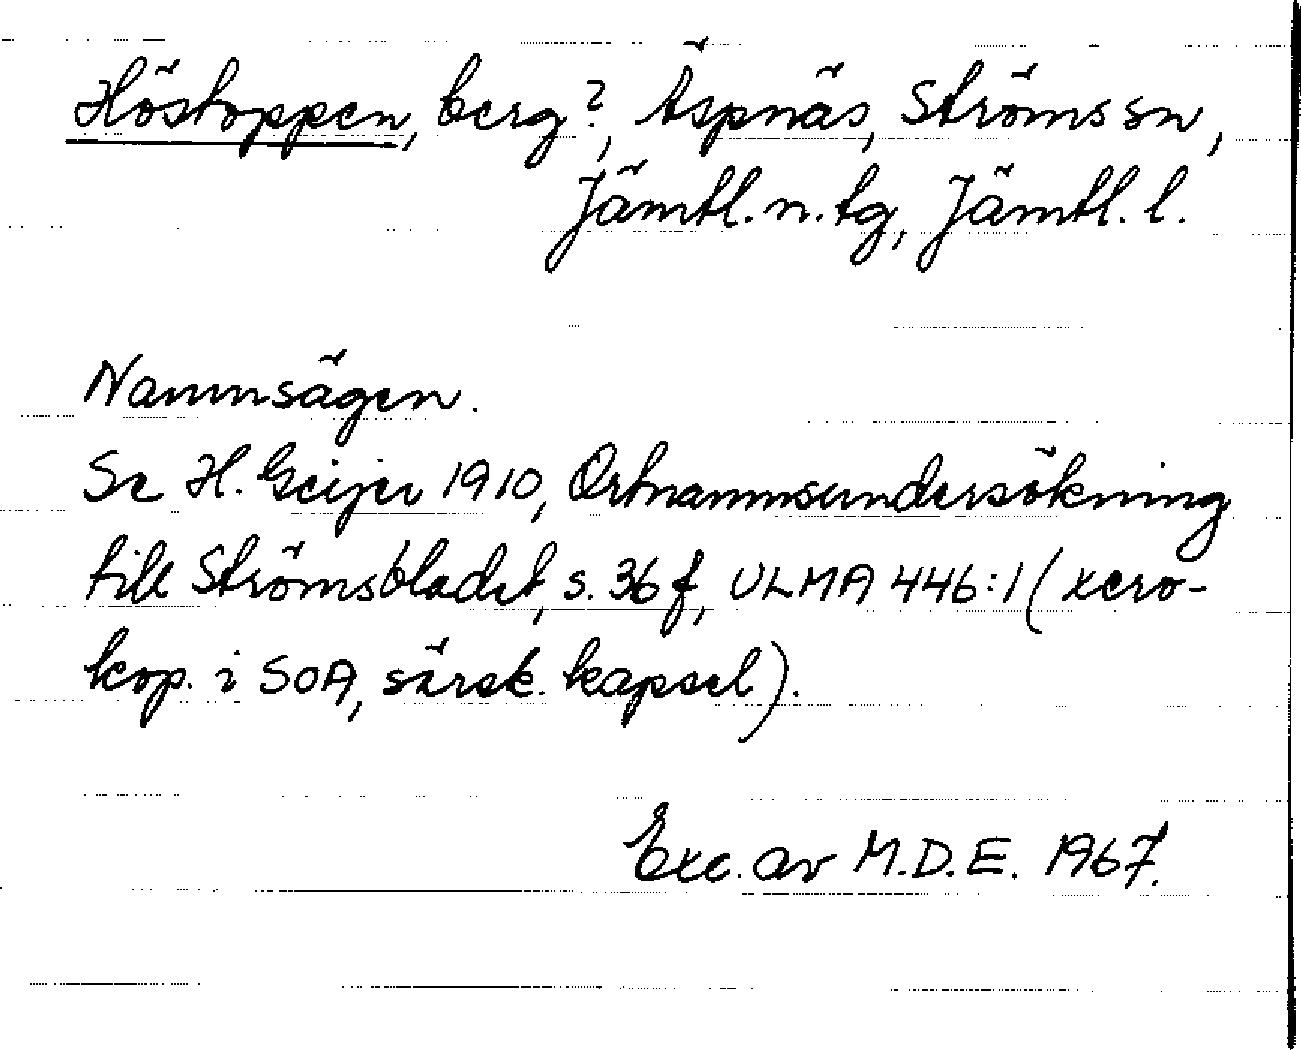 Höstoppen, berg?, Äspnäs, Ströms sn,
Jämtl. n. tg, Jämtl. l.
Namnsägen.
Se H. Geijer 1910, Ortnamnsundersökning
till Strömsbladet, s. 36 f, ULMA 446:1 (xero-
kop. i SOA, särsk. kapsel).
Exc. av M.D.E. 1967.